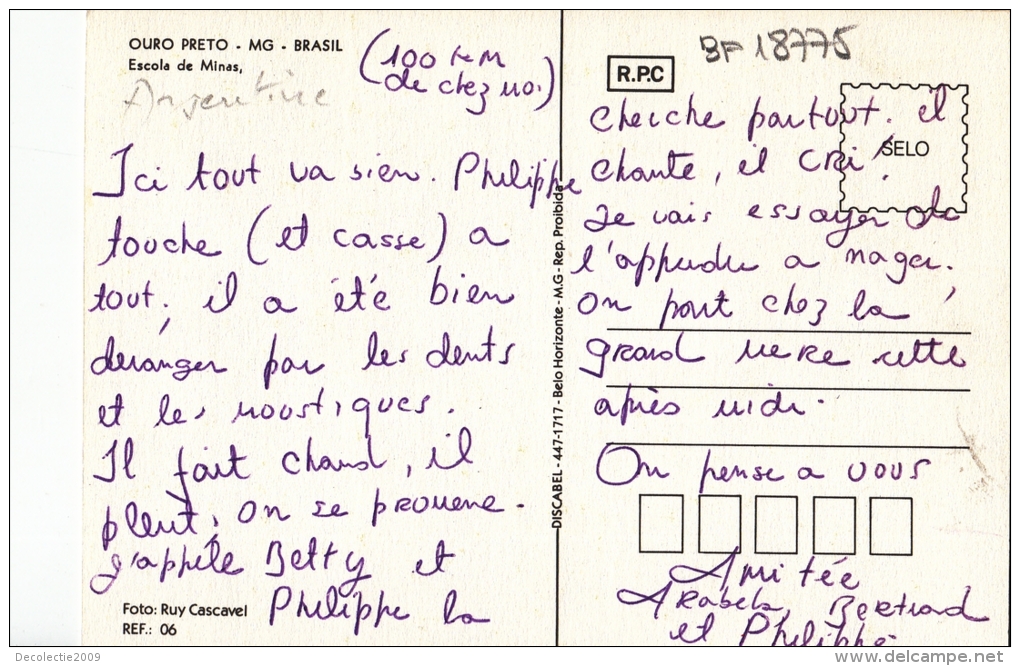 OURO PRETO - MG - BRASIL
Escola de Minas,
(100 KM
de chez no.)
Argentine
Ici tout va bien. Philippe
touche (et casse) a
tout; il a été bien
deranger par les dents
et les moustiques.
Il fait chaud, il
pleut, on se promene.
J'appele Betty et
Philippe la
Foto: Ruy Cascavel
REF.: 06
DISCABEL - 447-1717 - Belo Horizonte - M.G - Rep. Proibida
BF 18775
R.P.C
SELO
cherche partout. il
chante, il cri!
Je vais essayer de
l'apprendre a nager.
On part chez la
grand mere cette
après midi.
On pense a vous
Amitée
Arabela, Bertrand
et Philippe
Decolectie2009
www.delcampe.net